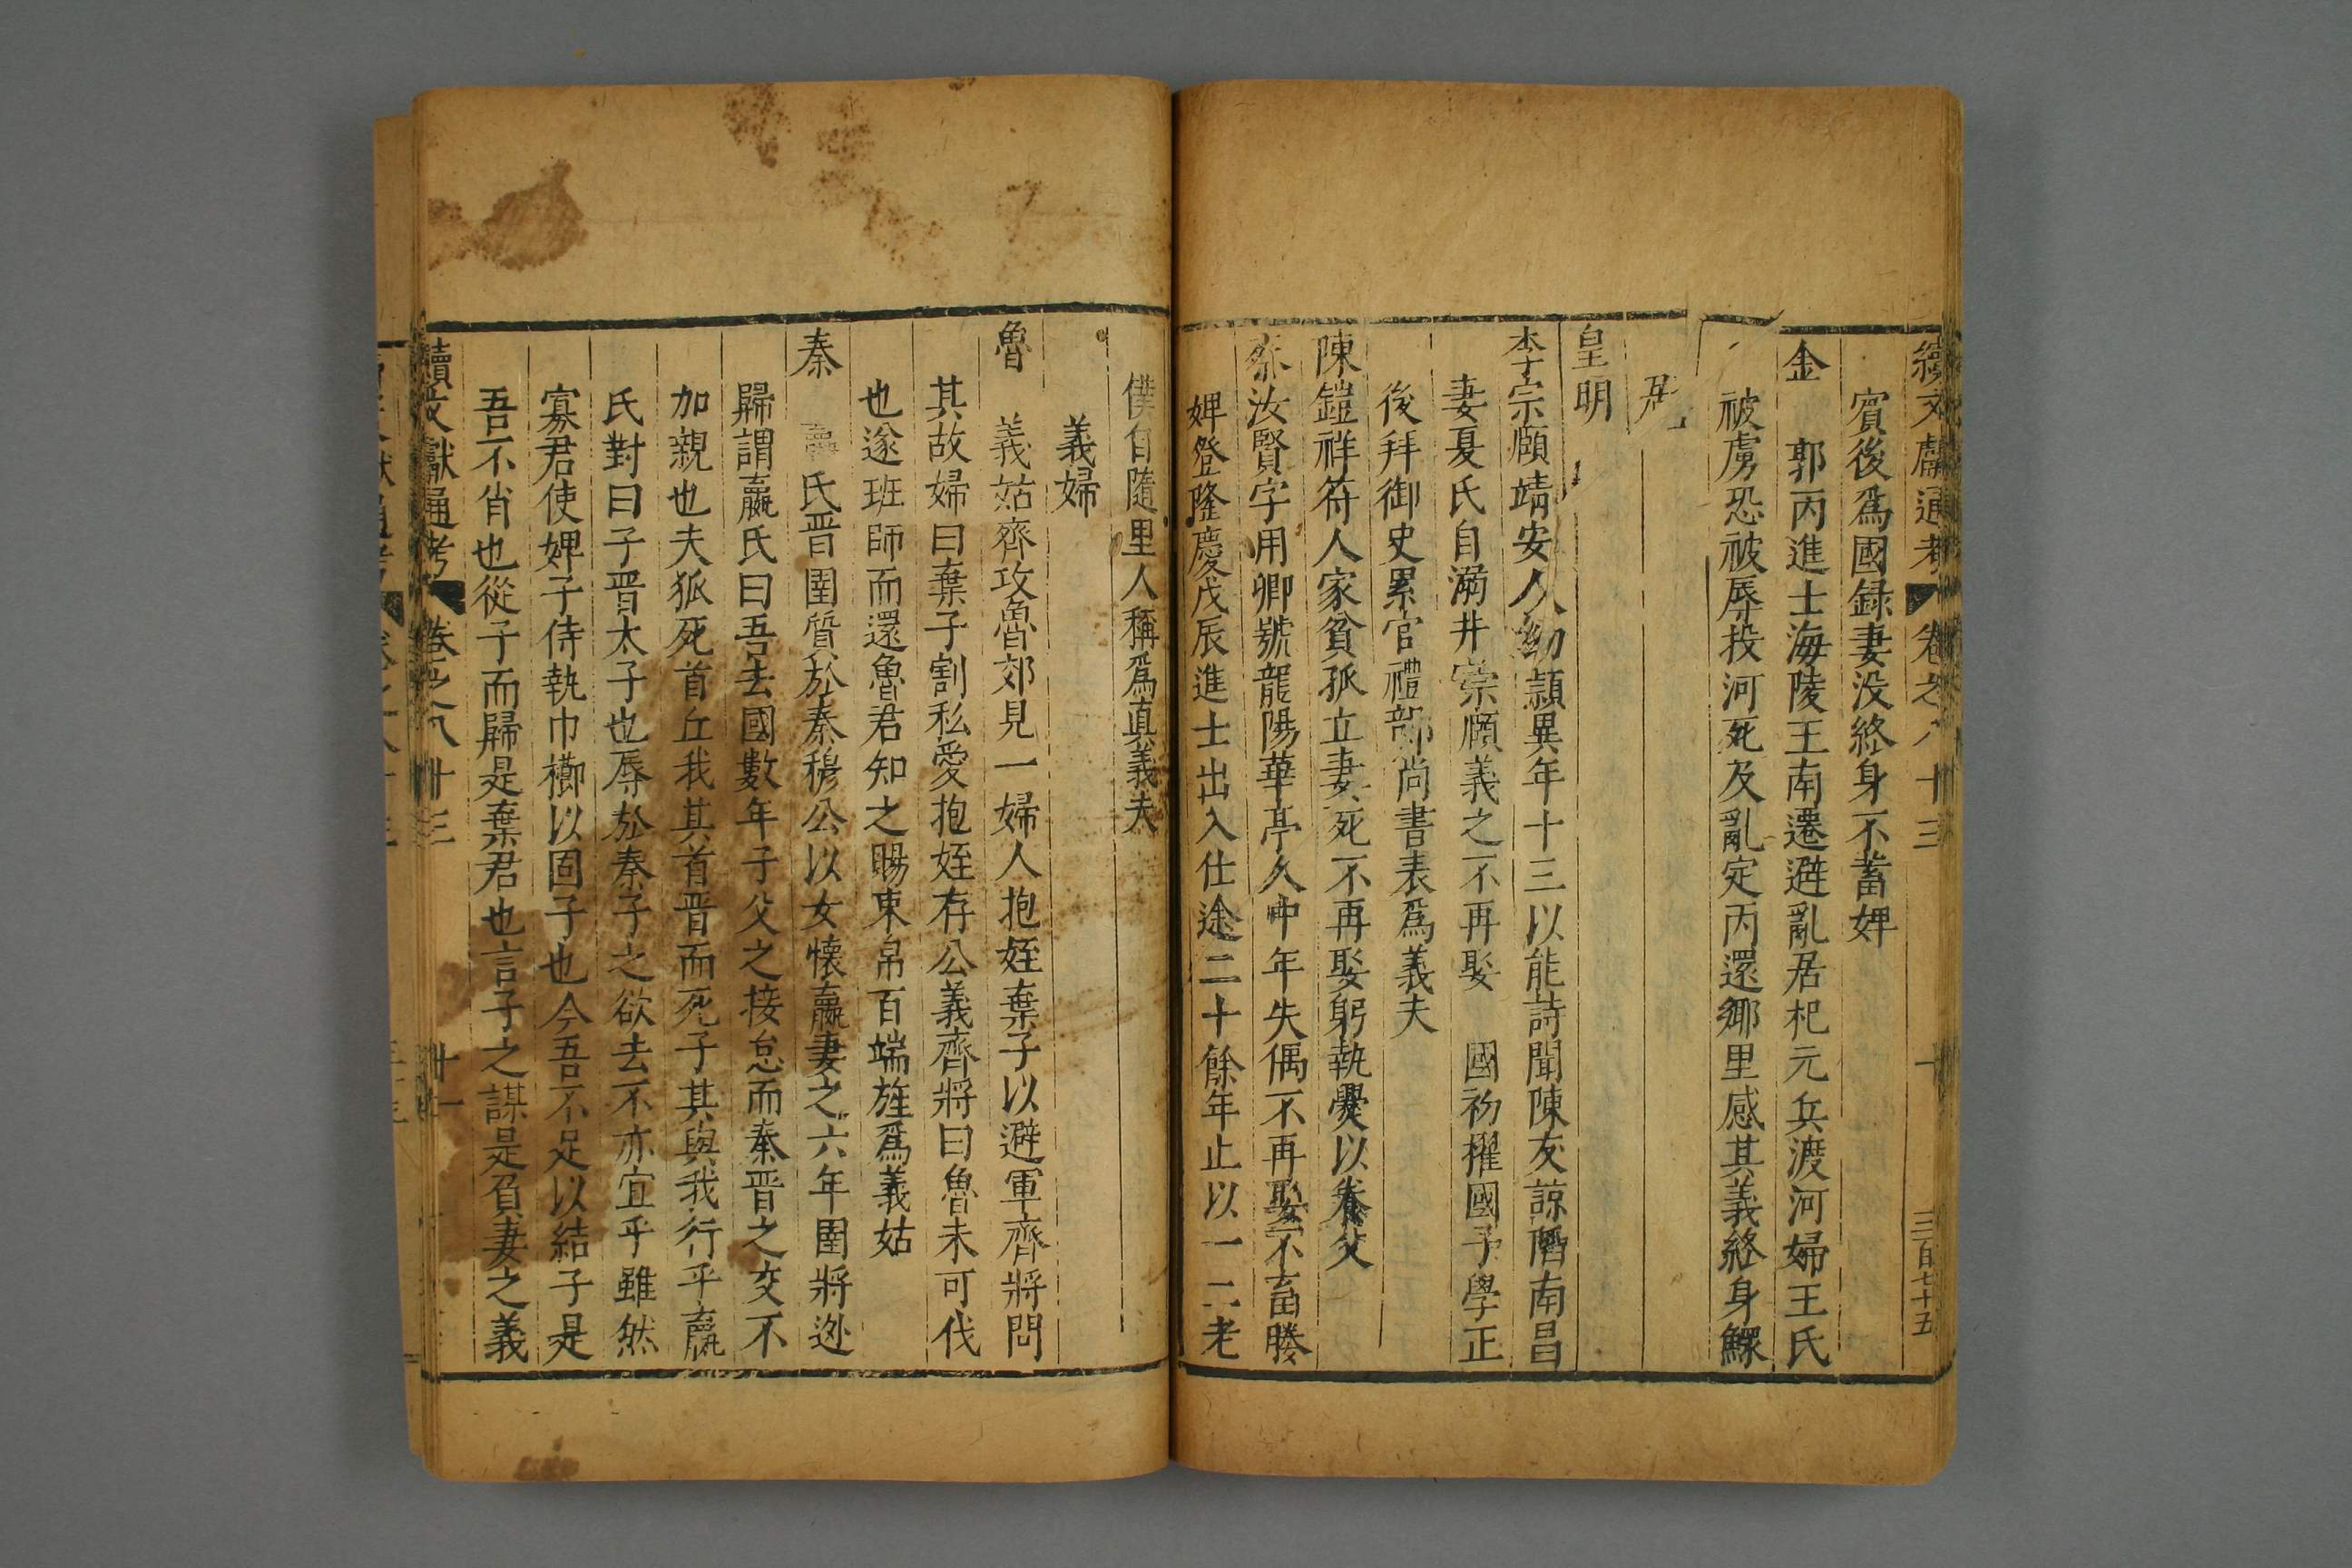 續文獻通考 卷之八十三 十 三百七十五
賓後爲國録妻没終身不蓄婢
金 郭丙進士海陵王南遷避亂居杞元兵渡河婦王氏
被虜恐被辱投河死及亂定丙還鄉里感其義終身鰥
居
皇明
李宗頤靖安人幼頴異年十三以能詩聞陳友諒陷南昌
妻夏氏自溺井崇頤義之不再娶 國初擢國子學正
後拜御史累官禮部尚書表爲義夫
陳鎧祥符人家貧孤立妻死不再娶躬執爨以養父
蔡汝賢字用卿號龍陽華亭人中年失偶不再娶不畜媵
婢登隆慶戊辰進士出入仕途二十餘年止以一二老
僕自隨里人稱爲真義夫
義婦
魯 義姑齊攻魯郊見一婦人抱姪棄子以避軍齊將問
其故婦曰棄子割私愛抱姪存公義齊將曰魯未可伐
也遂班師而還魯君知之賜束帛百端旌爲義姑
秦 嬴氏晋圉質於秦穆公以女懷嬴妻之六年圉將逃
歸謂嬴氏曰吾去國數年子父之接怠而秦晋之交不
加親也夫狐死首丘我其首晋而死子其與我行乎嬴
氏對曰子晋太子也辱於秦子之欲去不亦宜乎雖然
寡君使婢子侍執巾櫛以固子也今吾不足以結子是
吾不肖也從子而歸是棄君也言子之謀是負妻之義
續文獻通考 卷之八十三 十一